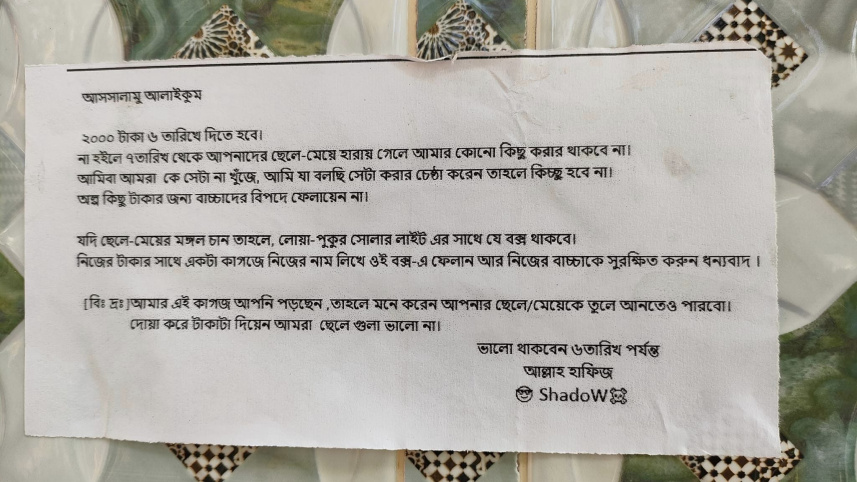 আসসালামু আলাইকুম
২০০০ টাকা ৬ তারিখে দিতে হবে।
না হইলে ৭তারিখ থেকে আপনাদের ছেলে-মেয়ে হারায় গেলে আমার কোনো কিছু করার থাকবে না।
আমিবা আমরা কে সেটা না খুঁজে, আমি যা বলছি সেটা করার চেষ্ঠা করেন তাহলে কিচ্ছু হবে না।
অল্প কিছু টাকার জন্য বাচ্চাদের বিপদে ফেলায়েন না।
যদি ছেলে-মেয়ের মঙ্গল চান তাহলে, নোয়া-পুকুর সোলার লাইট এর সাথে যে বক্স থাকবে।
নিজের টাকার সাথে একটা কাগজে নিজের নাম লিখে ওই বক্স-এ ফেলান আর নিজের বাচ্চাকে সুরক্ষিত করুন ধন্যবাদ ।
[বিঃ দ্রঃ]আমার এই কাগজ আপনি পড়ছেন ,তাহলে মনে করেন আপনার ছেলে/মেয়েকে তুলে আনতেও পারবো।
দোয়া করে টাকাটা দিয়েন আমরা ছেলে গুলা ভালো না।
ভালো থাকবেন ৬তারিখ পর্যন্ত
আল্লাহ হাফিজ
😎 ShadoW☠